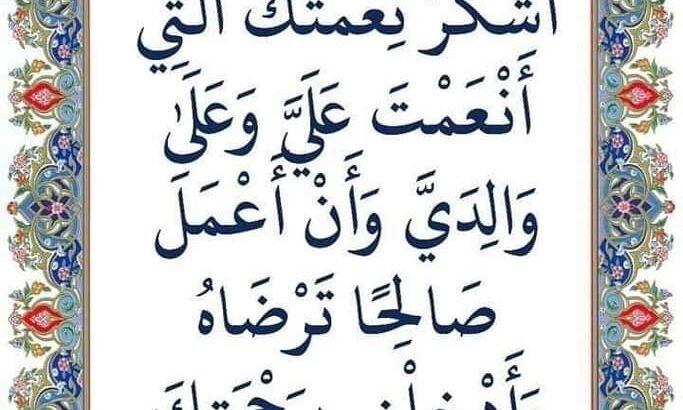 أَشْكُرَ نِعْمَتَكَ الَّتِي
أَنْعَمْتَ عَلَيَّ وَعَلَىٰ
وَالِدَيَّ وَأَنْ أَعْمَلَ
صَالِحًا تَرْضَاهُ
وَأَدْخِلْنِي بِرَحْمَتِكَ